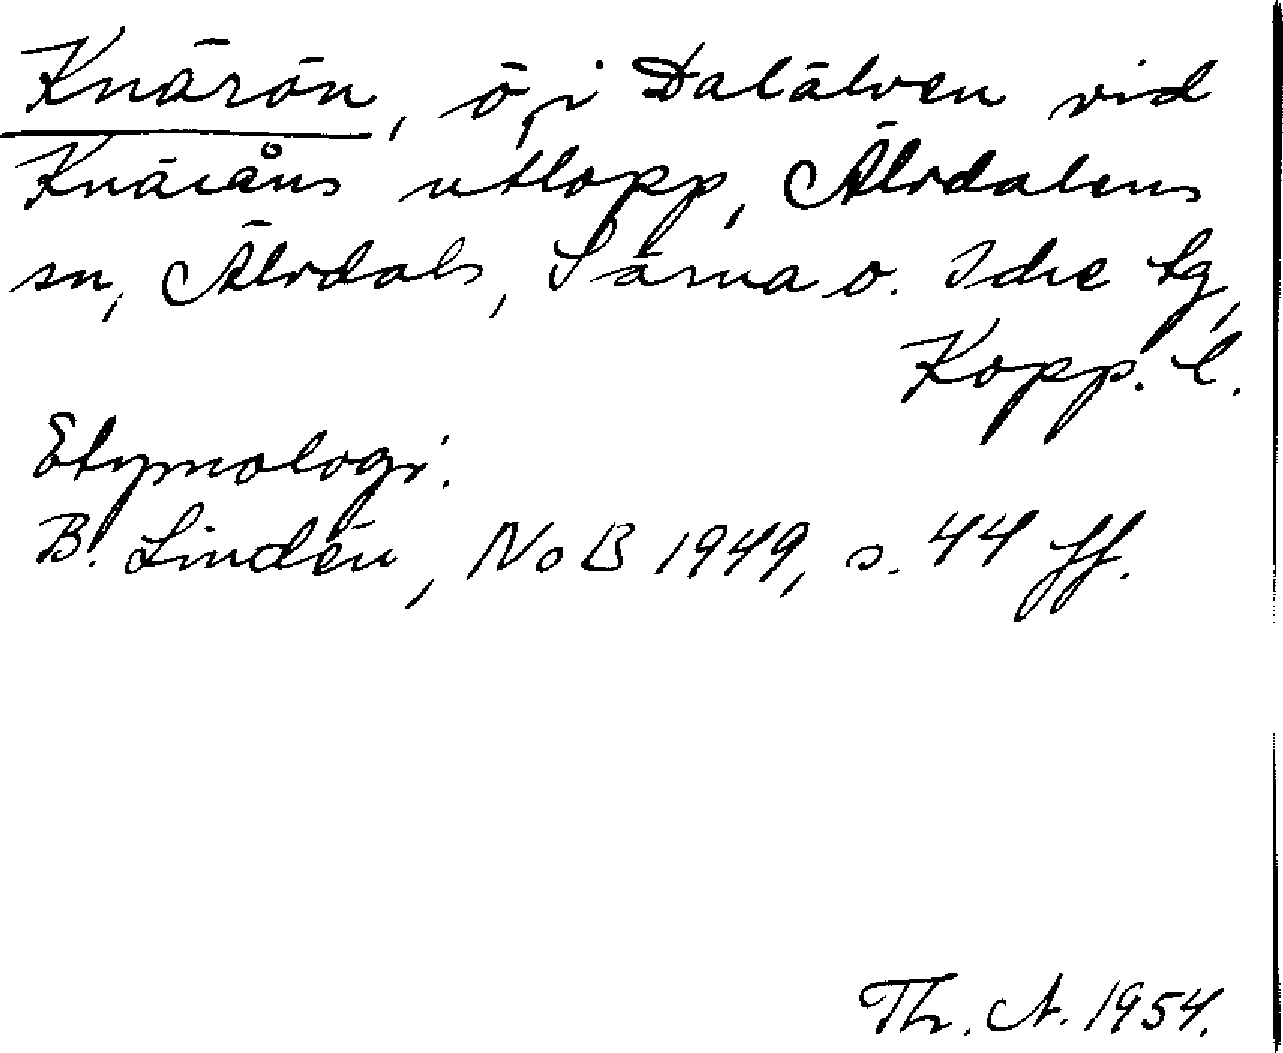 Knärön, ö i Dalälven vid
Knäråns utlopp, Älvdalens
sn, Älvdals, Särna o. Idre tg,
Kopp. l.
Etymologi:
B. Lindén, NoB 1949, s. 44 ff.
Th. A. 1954.